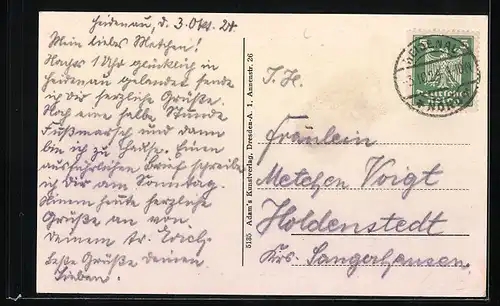 Heidenau, d. 3. Okt. 24.
Mein liebes Metchen!
Nachts 1 Uhr glücklich in
Heidenau gelandet sende
ich Dir herzliche Grüße.
Noch eine halbe Stunde
Fußmarsch und dann
bin ich zu Hause. Einen
ausführlichen Brief schreibe
ich Dir am Sonntag.
Nimm heute herzliche
Grüße an von
Deinem tr. Erich.
Beste Grüße Deinen
Lieben.
5135 Adam's Kunstverlag, Dresden-A. 1, Annenstr. 26
5
I. H.
Fräulein
Metchen Voigt
Holdenstedt
Krs. Sangerhausen